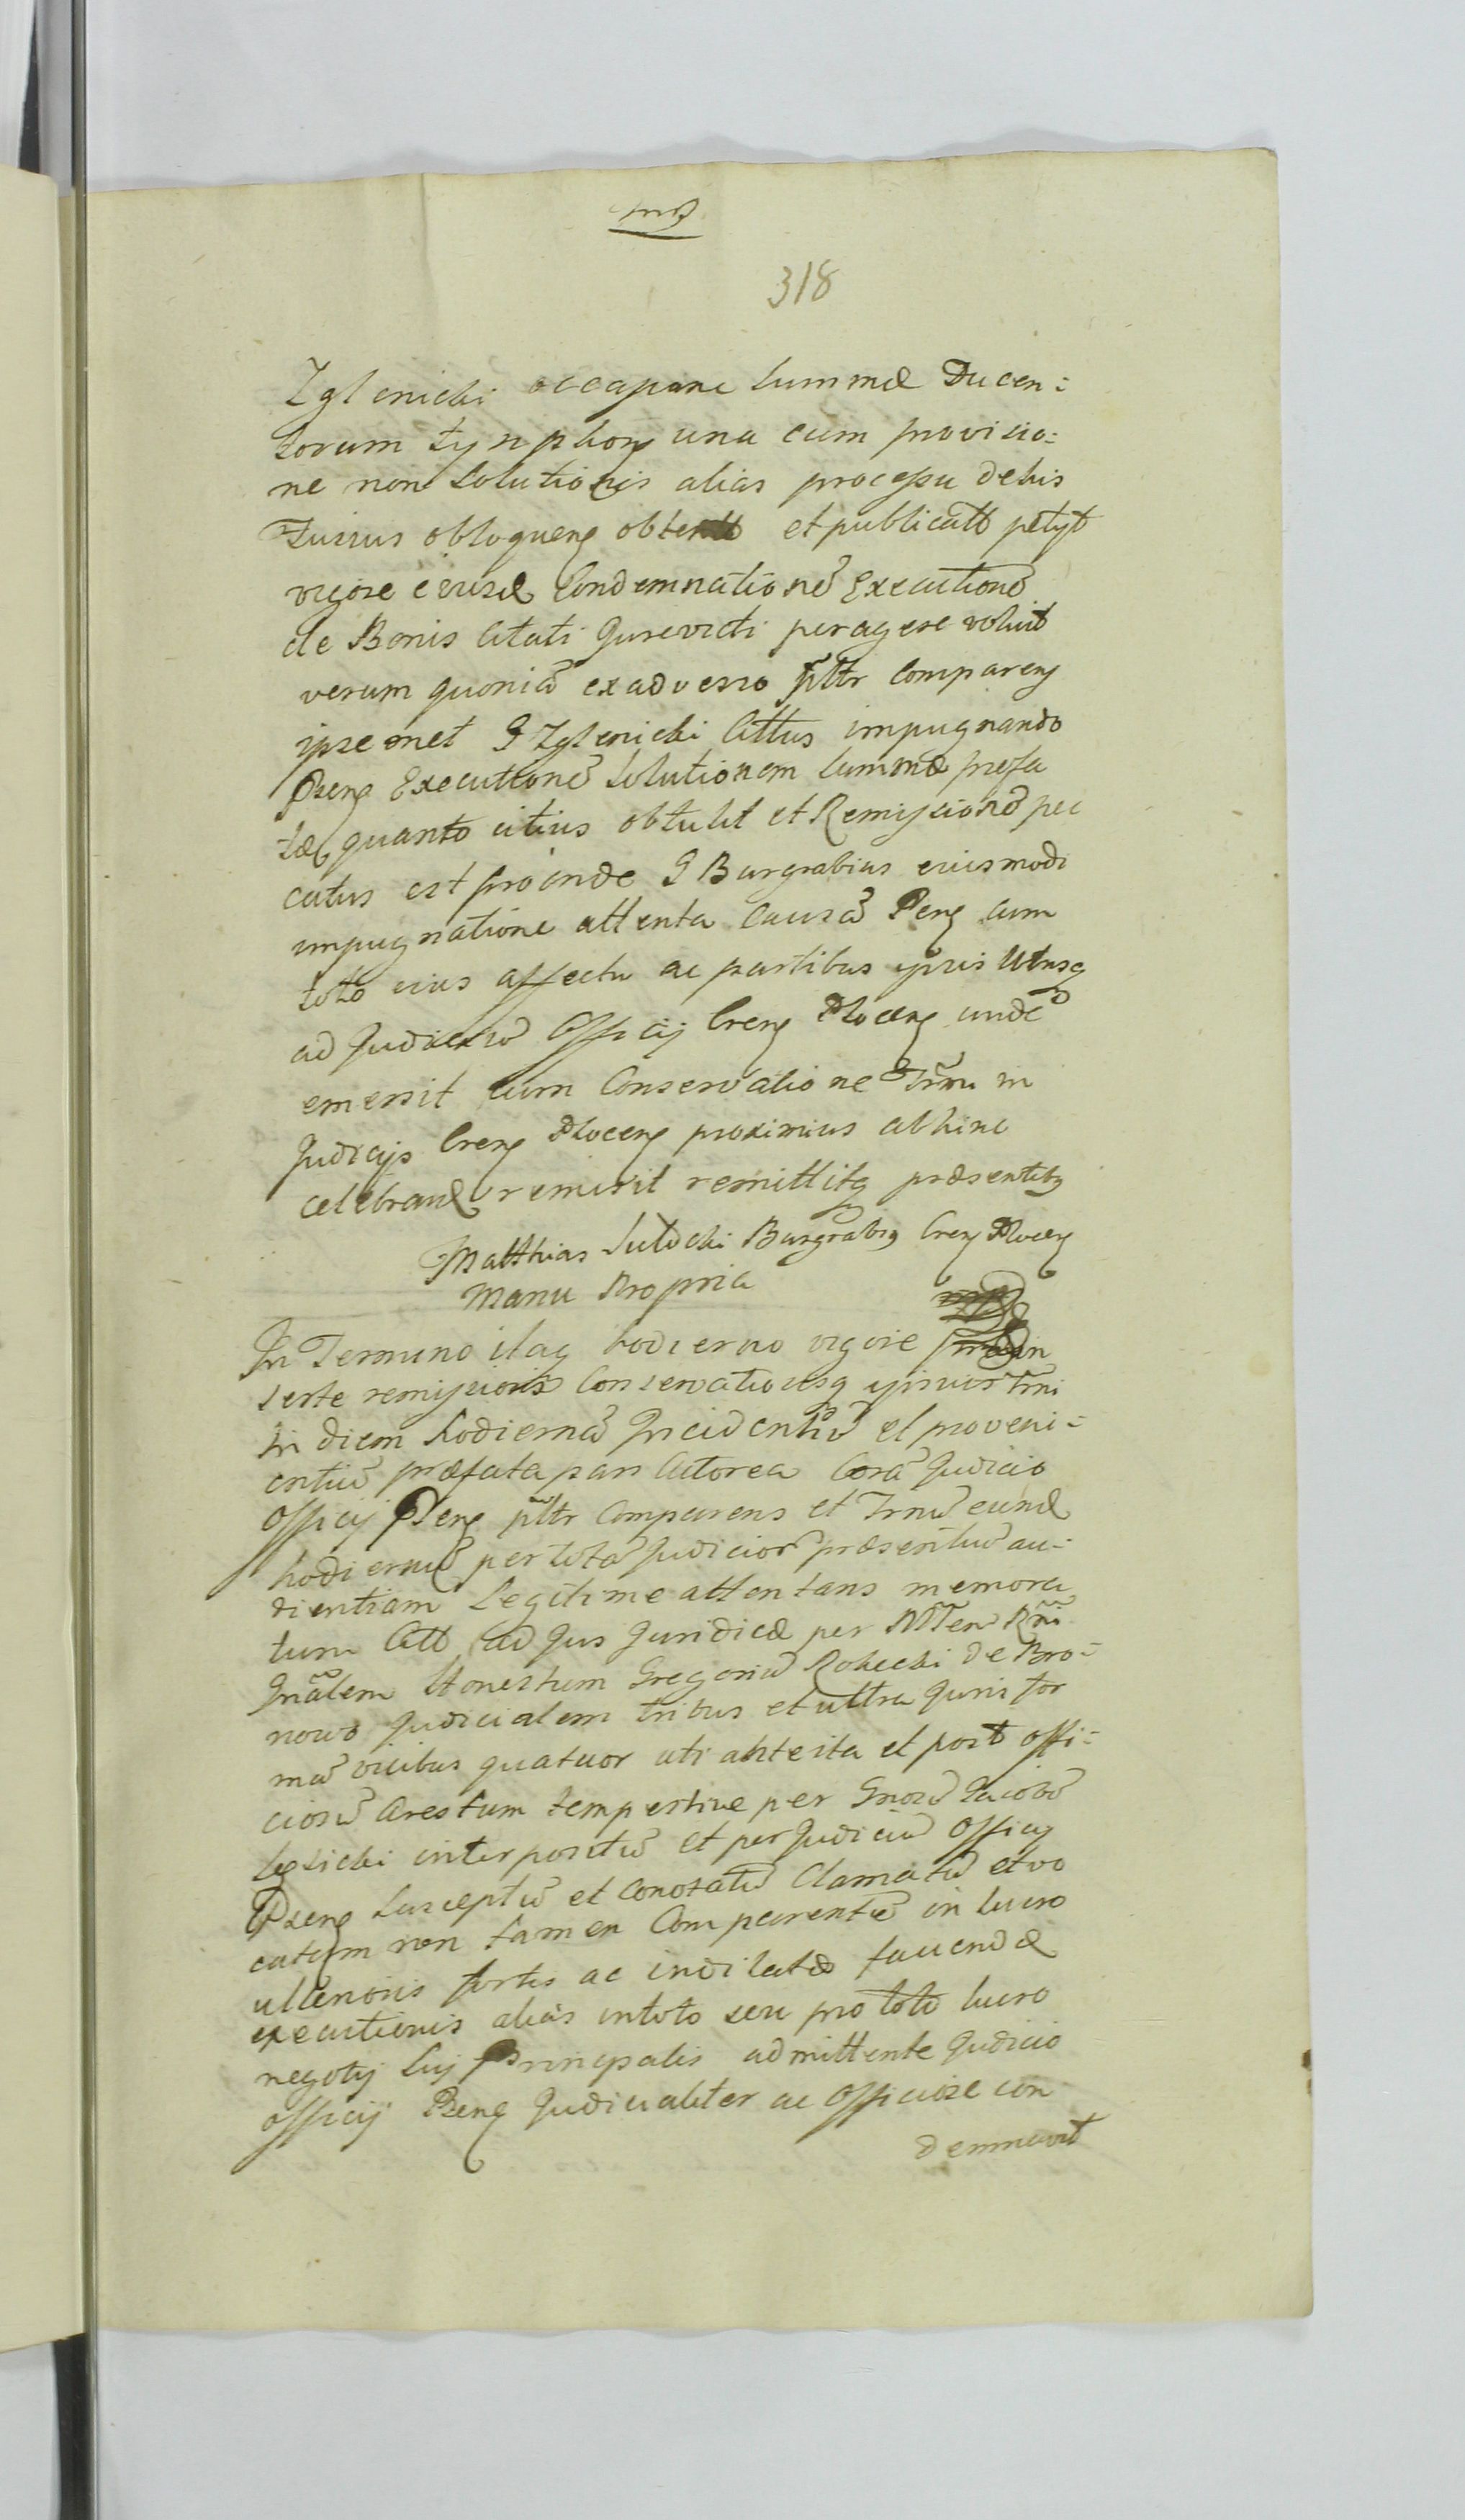 318
Zglenicki occapane summæ Ducen:
torum tynphorꝫ una cum provisio:
ne non solutionis alias processu dehis
fusius obloquenꝫ obtento et publicatt petyt
vigore eiusd Condemnationē Executionē
de Bonis Citati Jurevicti peragere voluit
verum quoniā exadverso pltr comparenꝫ
ipsemet G Zglenicki Cittus impugnando
Psenꝫ Executionē solutionem summæ præfa
tæ quanto citius obtulit et Remissionē pec
catus est proinde G Burgrabius eiusmodi
impugnatione attenta causā Psenꝫ cum
toto eius affectu ac partibus ipsis Utrusqꝫ
ad Judiciū Officij Crenꝫ Plocenꝫ unde
emersit cum Conservatione Trm̃i in
Judicijs Crenꝫ Plocenꝫ proximius abhinc
celebrand remisit remittitqꝫ præsentibꝫ
Matthias Sutocki Burgrabiꝫ Crenꝫ Plocenꝫ
Manu Propria
In Termino itaqꝫ hodierno vigore præin
serte remissionis Conservationisqꝫ ipsius Trm̃i
in diem hodiernā Incidentiū et proveni:
entiū præfata pars Actorea Corā Judicio
Officij Psenꝫ pltr Comparens et Trnū eund
hodiernū per totā Judicior præsentiū au:
dientiam Legitime attentans memora
tum Citt ad Jus Juridicæ per Mten Rñi
Gnãlem Honestum Gregoriū Rokecki de Bro:
nowo Judicialem tribus et ultra Juris for
mā vicibus quatuor uti antesita et post offi:
ciosū Arestum tempestive per Gnosū Jacobū
Lesicki interpositū et per Judiciū Officij
Psenꝫ susceptū et conotatū Clamatū et vo
catum non tamen Comparentē in lucro
ulterioris fortis ac indilatæ favendæ
executionis alias intoto seu pro toto lucro
negotij sui Principalis admittente Judicio
officij Psenꝫ Judicialiter ac Officiose con
demnavit